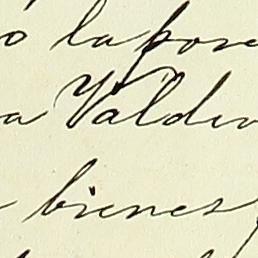 ó la pose
a Valdiv
bienes